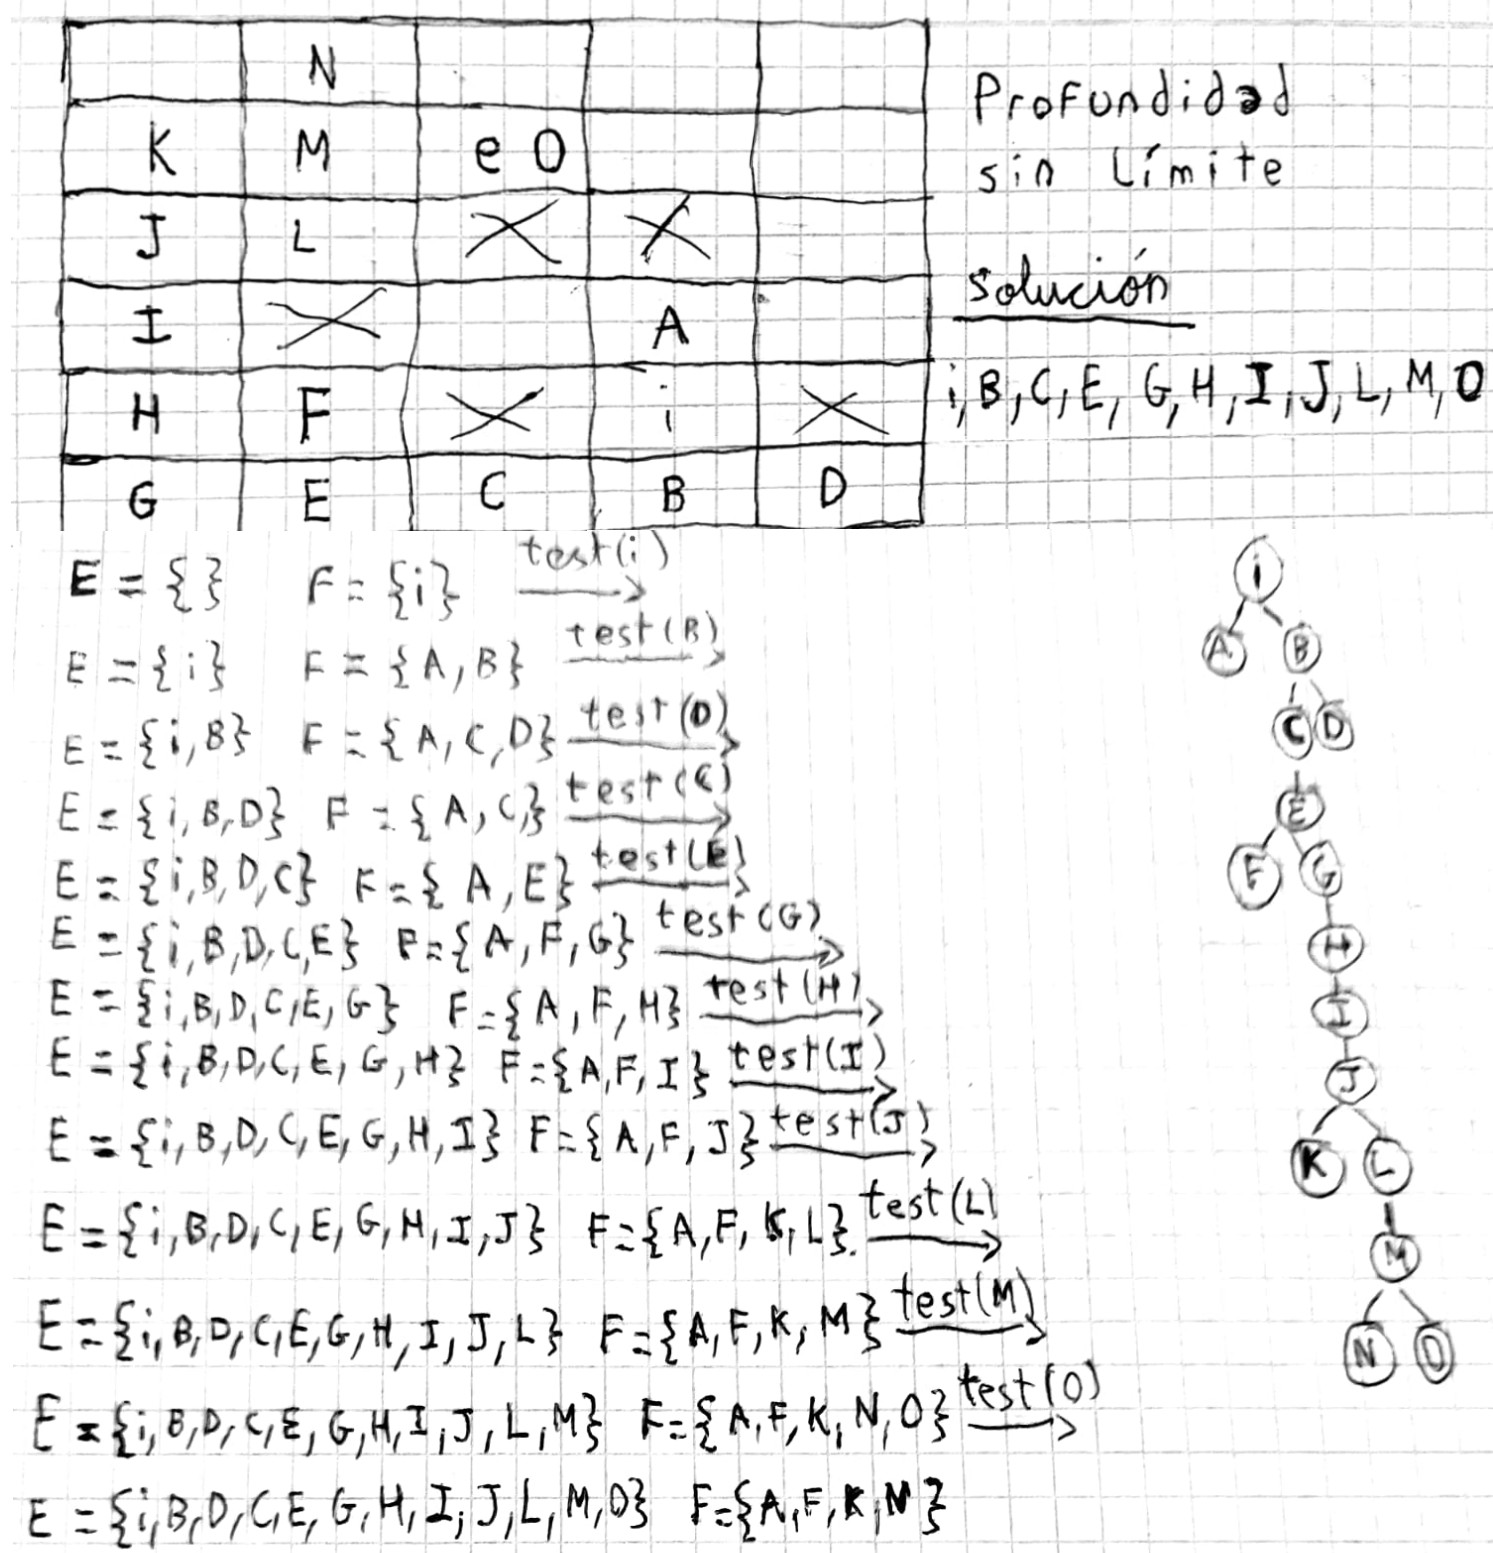 N
K M e O
J L X X
I X A
H F X i X
G E C B D
Profundidad
sin Límite
solución
i, B, C, E, G, H, I, J, L, M, O
E = {} F = {i} test(i)
E = {i} F = {A, B} test(B)
E = {i, B} F = {A, C, D} test(D)
E = {i, B, D} F = {A, C,} test(C)
E = {i, B, D, C} F = {A, E} test(E)
E = {i, B, D, C, E} F = {A, F, G} test(G)
E = {i, B, D, C, E, G} F = {A, F, H} test(H)
E = {i, B, D, C, E, G, H} F = {A, F, I} test(I)
E = {i, B, D, C, E, G, H, I} F = {A, F, J} test(J)
E = {i, B, D, C, E, G, H, I, J} F = {A, F, K, L}. test(L)
E = {i, B, D, C, E, G, H, I, J, L} F = {A, F, K, M} test(M)
E = {i, B, D, C, E, G, H, I, J, L, M} F = {A, F, K, N, O} test(O)
E = {i, B, D, C, E, G, H, I, J, L, M, O} F = {A, F, K, N}
i
A B
C D
E
F G
H
I
J
K L
M
N O